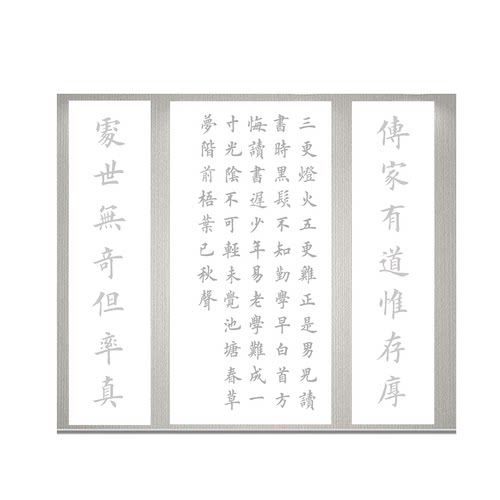 傳家有道惟存厚
三更燈火五更雞正是男兒讀
書時黑髮不知勤學早白首方
悔讀書遲少年易老學難成一
寸光陰不可輕未覺池塘春草
夢階前梧葉已秋聲
處世無奇但率真